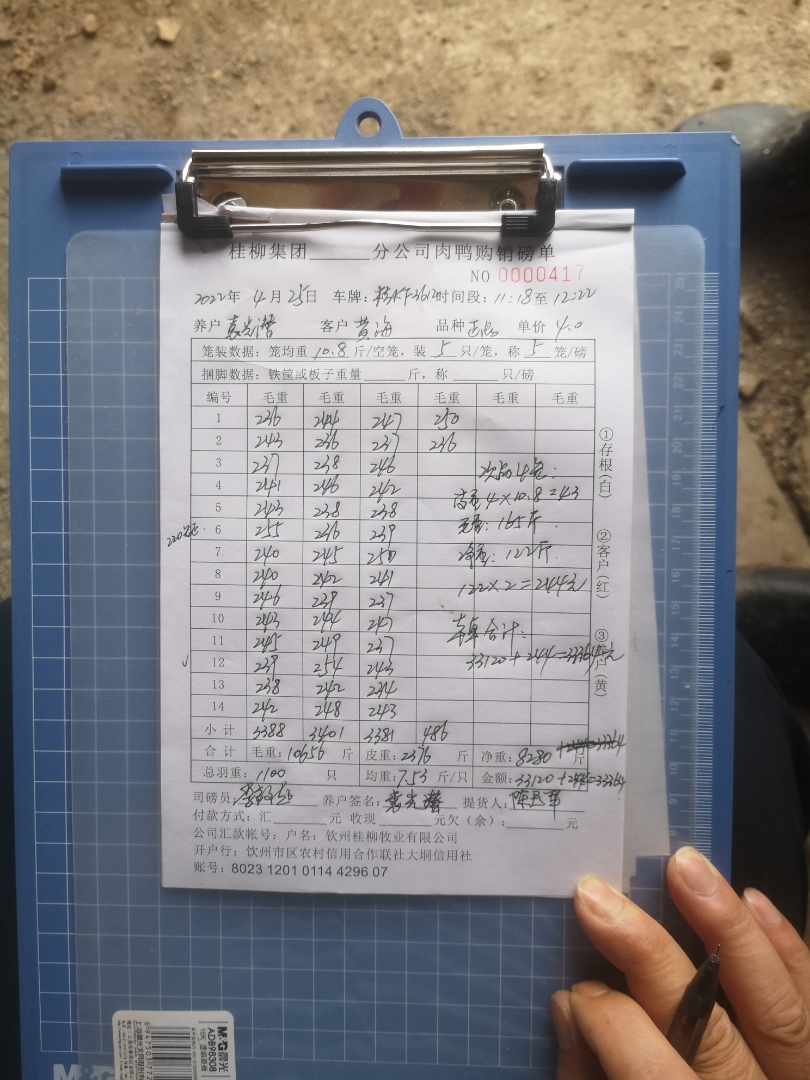 桂柳集团______分公司肉鸭购销磅单
NO 0000417
2022年 4月25日 车牌: 时间段: 11:18至12:22
养户 袁光潜 客户 黄海 品种 单价 4.0
笼装数据: 笼均重 10.8 斤/空笼, 装 5 只/笼, 称 5 笼/磅
捆脚数据: 铁筐或板子重量______斤, 称______只/磅
编号 毛重 毛重 毛重 毛重 毛重 毛重
1 236 244 247 250
2 243 236 237 236
3 237 238 246
4 241 246 242
5 243 238 238
6 255 236 239
7 240 245 250
8 240 242 241
9 246 239 237
10 243 244 247
11 245 249 237
12 239 254 243
13 238 242 234
14 242 248 243
次品4笼:
4×10.8=43
毛重: 165斤
净重: 122斤
122×2=244元
合计:
33120+244=33364元
小计 3388 3401 3381 486
合计 毛重: 10656 斤 皮重: 2376 斤 净重: 8280 斤
总羽重: 1100 只 均重: 7.53 斤/只 金额: 33120+244=33364
司磅员: 养户签名: 袁光潜 提货人:
付款方式: 汇______元 收现______元欠(余):______元
公司汇款帐号: 户名: 钦州桂柳牧业有限公司
开户行: 钦州市区农村信用合作联社大垌信用社
账号: 8023 1201 0114 4296 07
①存根(白)
②客户(红)
M&G晨光
ADB98308
M&G